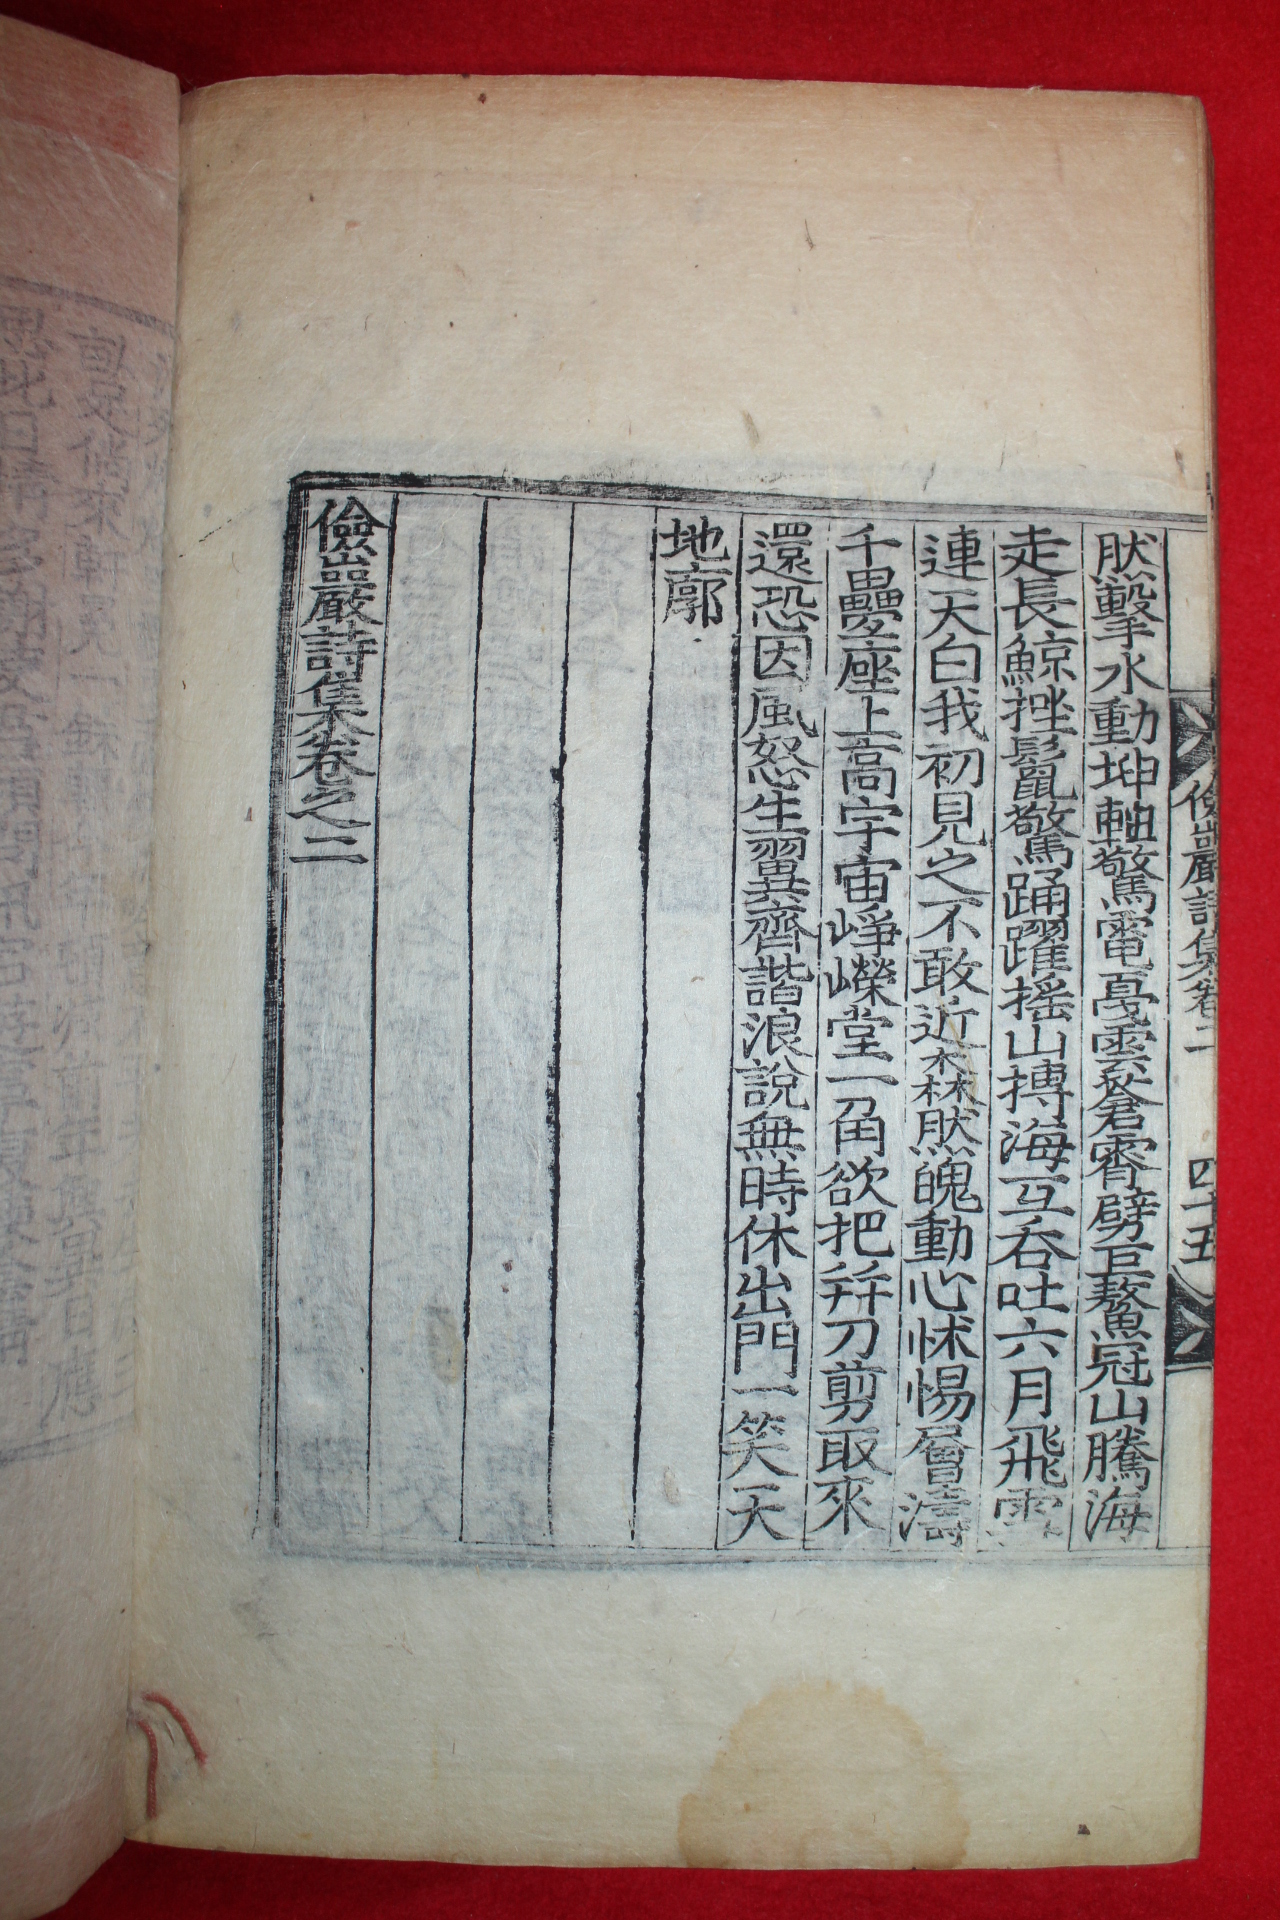 儉巖詩集卷二　四十五
然擊水動坤軸驚電戛雲蒼霄劈巨鰲冠山騰海
走長鯨挫鬣驚踊躍搖山搏海互呑吐六月飛雪
連天白我初見之不敢近森然魄動心怵惕層濤
千疊座上高宇宙崢嶸堂一角欲把幷刀剪取來
還恐因風怒生翼齊諧浪說無時休出門一笑天
地廓
儉巖詩集卷之二